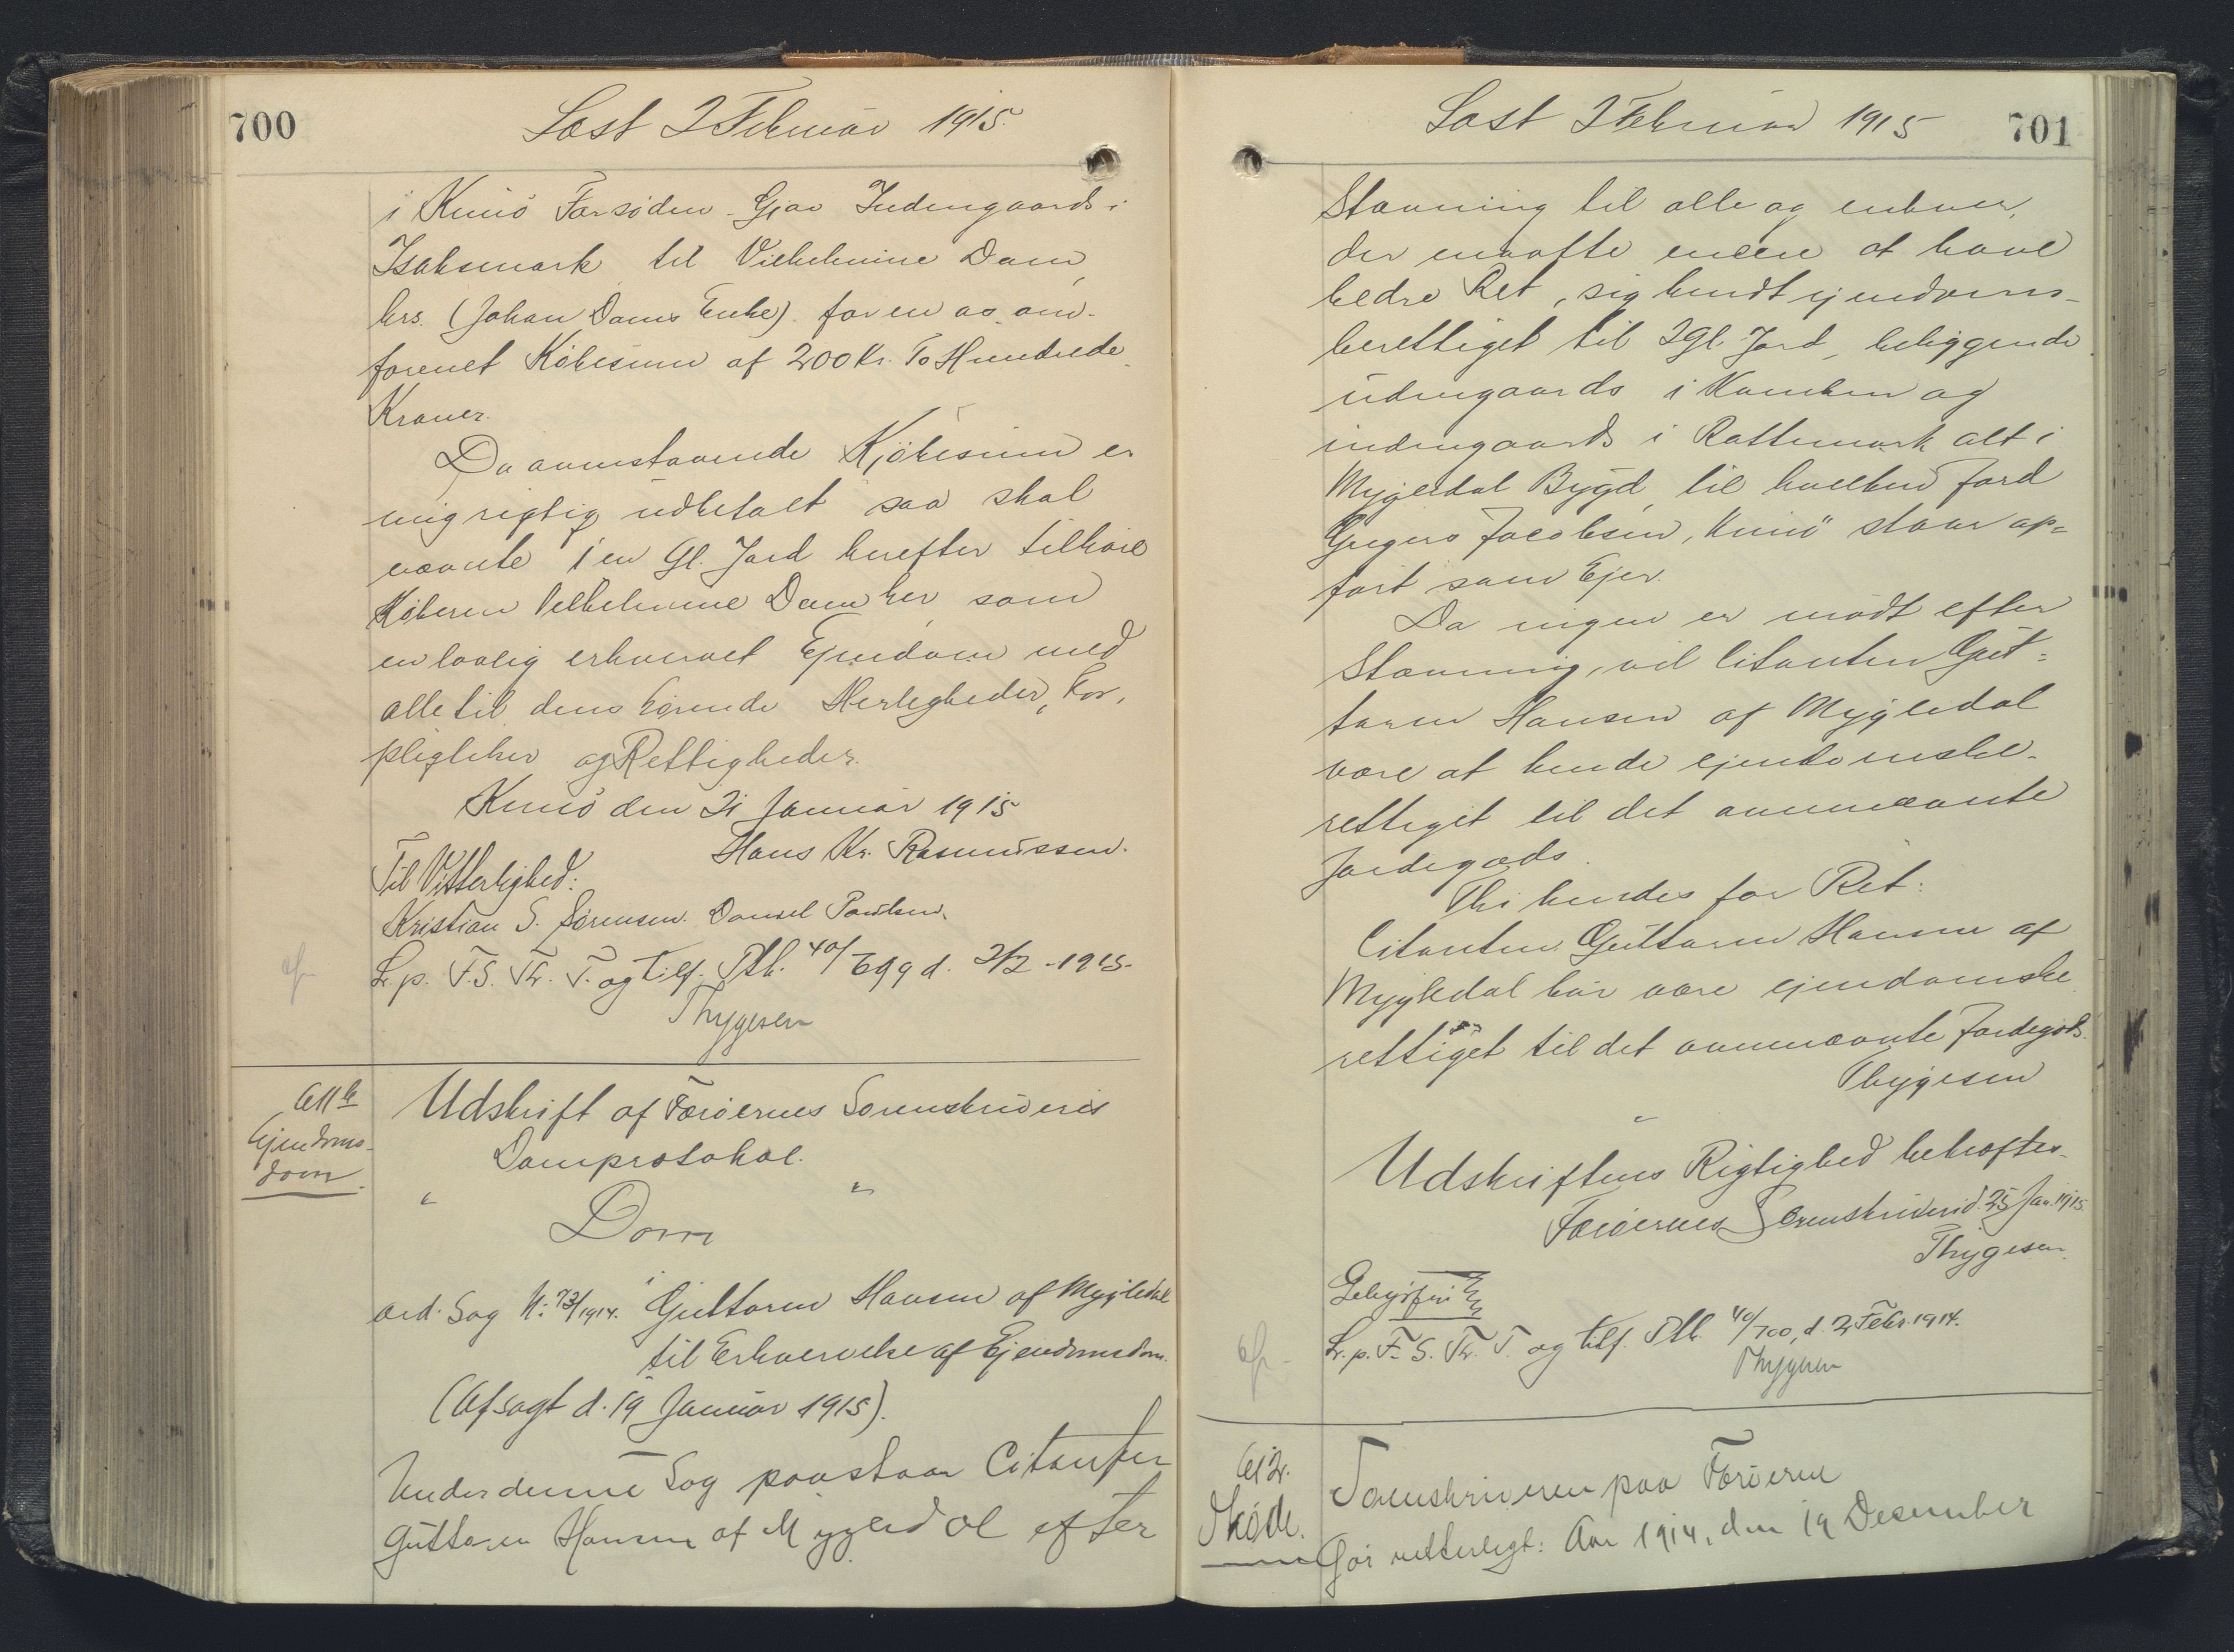 700
Læst 2 Februar 1915.
i Kunö Forsöden. Gjav Indengaards i
Isaksmark til Vilhelmine Dam,
hrs. (Johan Dams Enke) for en av om-
forenet Köbesum af 200 Kr. To Hundrede
Kroner.
Da ovenstaaende Kjöbesum er
mig rigtig udbetalt saa skal
nævnte 1 en Gl. Jord herefter tilhöre
Köberen Vilhelmine Dam her, som
en lovlig erhvervet Ejendom med
alle til dens hörende Herligheder, For-
pligtelser og Rettigheder.
Kunö den 21 Januar 1915
Hans Kr. Rasmussen.
Til Vitterlighed:
Kristian S. Sörensen. Daniel Poulsen.
L. p. F. S. Tr. T. og tilf. Ptb. 40/699 d. 2/2 - 1915.
Thygesen
611 b
Ejendoms-
dom.
Udskrift af Færöernes Sorenskriveris
Domprotokol.
" "
Dom
i
ord. Sag N: 73/1914. Guttorm Hansen af Mygledal
til Erhvervelse af Ejendomsdom.
(Afsagt d. 19 Januar 1915).
Under denne Sag paastaar Citanten
Guttorm Hansen af Mygledal efter
Læst 2 Februar 1915
701
Stævning til alle og enhver,
der maatte mene at have
bedre Ret, sig kendt ejendoms-
berettiget til 2 Gl. Jord, beliggende
udengaards i Kamben og
indengaards i Rattemark alt i
Mygledal Bygd, til hvilken Jord
Gregers Jacobsen, Kunö staar op=
fört som Ejer.
Da ingen er mödt efter
Stævning, vil Citanten Gut=
torm Hansen af Mygledal
være at kende ejendomsbe-
rettiget til det ovennævnte
Jordegods.
Thi kendes for Ret:
Citanten Guttorm Hansen af
Mygledal bör være ejendomsbe-
rettiget til det ovennævnte Jordegods.
Thygesen
"
Udskriftens Rigtighed bekræftes.
Færöernes Sorenskriveri d. 25 Jan. 1915.
Thygesen.
Gebyrfri
L. p. F. S. Tr. T. og tilf. Ptb. 40/700, d. 2 Febr. 1914.
Thygesen
612.
Sköde.
Sorenskriveren paa Færöerne
Gör vitterligt: Aar 1914, den 19 December